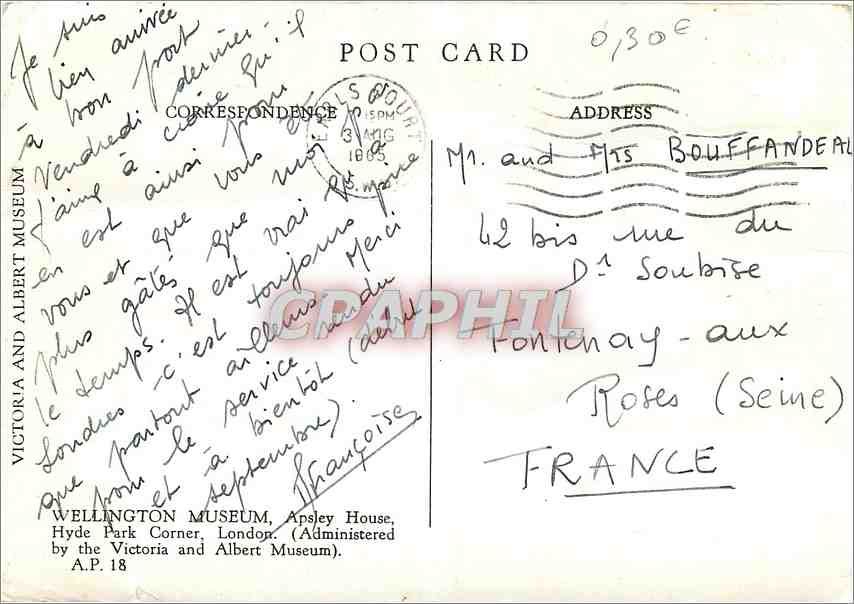 POST CARD
0,30€
CORRESPONDENCE
ADDRESS
VICTORIA AND ALBERT MUSEUM
Je suis
bien arrivée
à bon port
Vendredi dernier.
J'aime à croire qu'il
en est ainsi pour
vous et que vous êtes
plus gâtés que moi par
le temps. Il est vrai qu'à
Londres c'est toujours pire
que partout ailleurs. Merci
pour le service rendu
et à bientôt (début
septembre).
Françoise
EARLS COURT
15PM
3 AUG
1965
S.W.
Mr. and Mrs BOUFFANDEAU
42 bis rue du
Dr Soubise
Fontenay-aux
Roses (Seine)
FRANCE
CPAPHIL
WELLINGTON MUSEUM, Apsley House,
Hyde Park Corner, London. (Administered
by the Victoria and Albert Museum).
A.P. 18